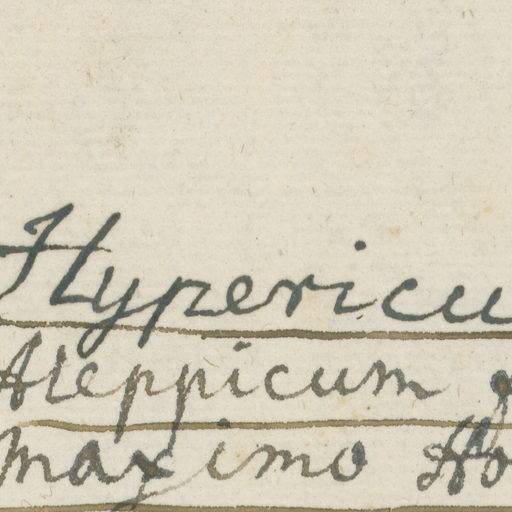 Hypericu
Aleppicum
maximo